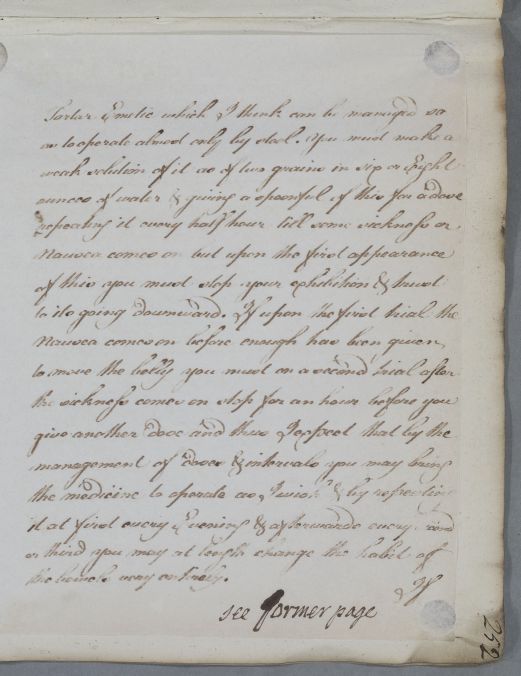 Tartar Emetic which I think can be managed so
as to operate almost only by stool. You must make a
weak solution of it as of two grains in six or Eight
ounces of water & giving a spoonful of this for a dose
repeating it every half hour till some sickness or
Nausea comes on but upon the first appearance
of this you must stop your exhibition & trust
to its going downward. If upon the first trial the
Nausea comes on before enough has been given
to move the belly you must on a second trial after
the sickness comes on stop for an hour before you
give another dose and thus I expect that by the
management of doses & intervals you may bring
the medicine to operate as I wish & by repeating
it at first every Evening & afterwards every 2nd
or third you may at length change the habit of
the bowels very entirely.
If
see former page
252